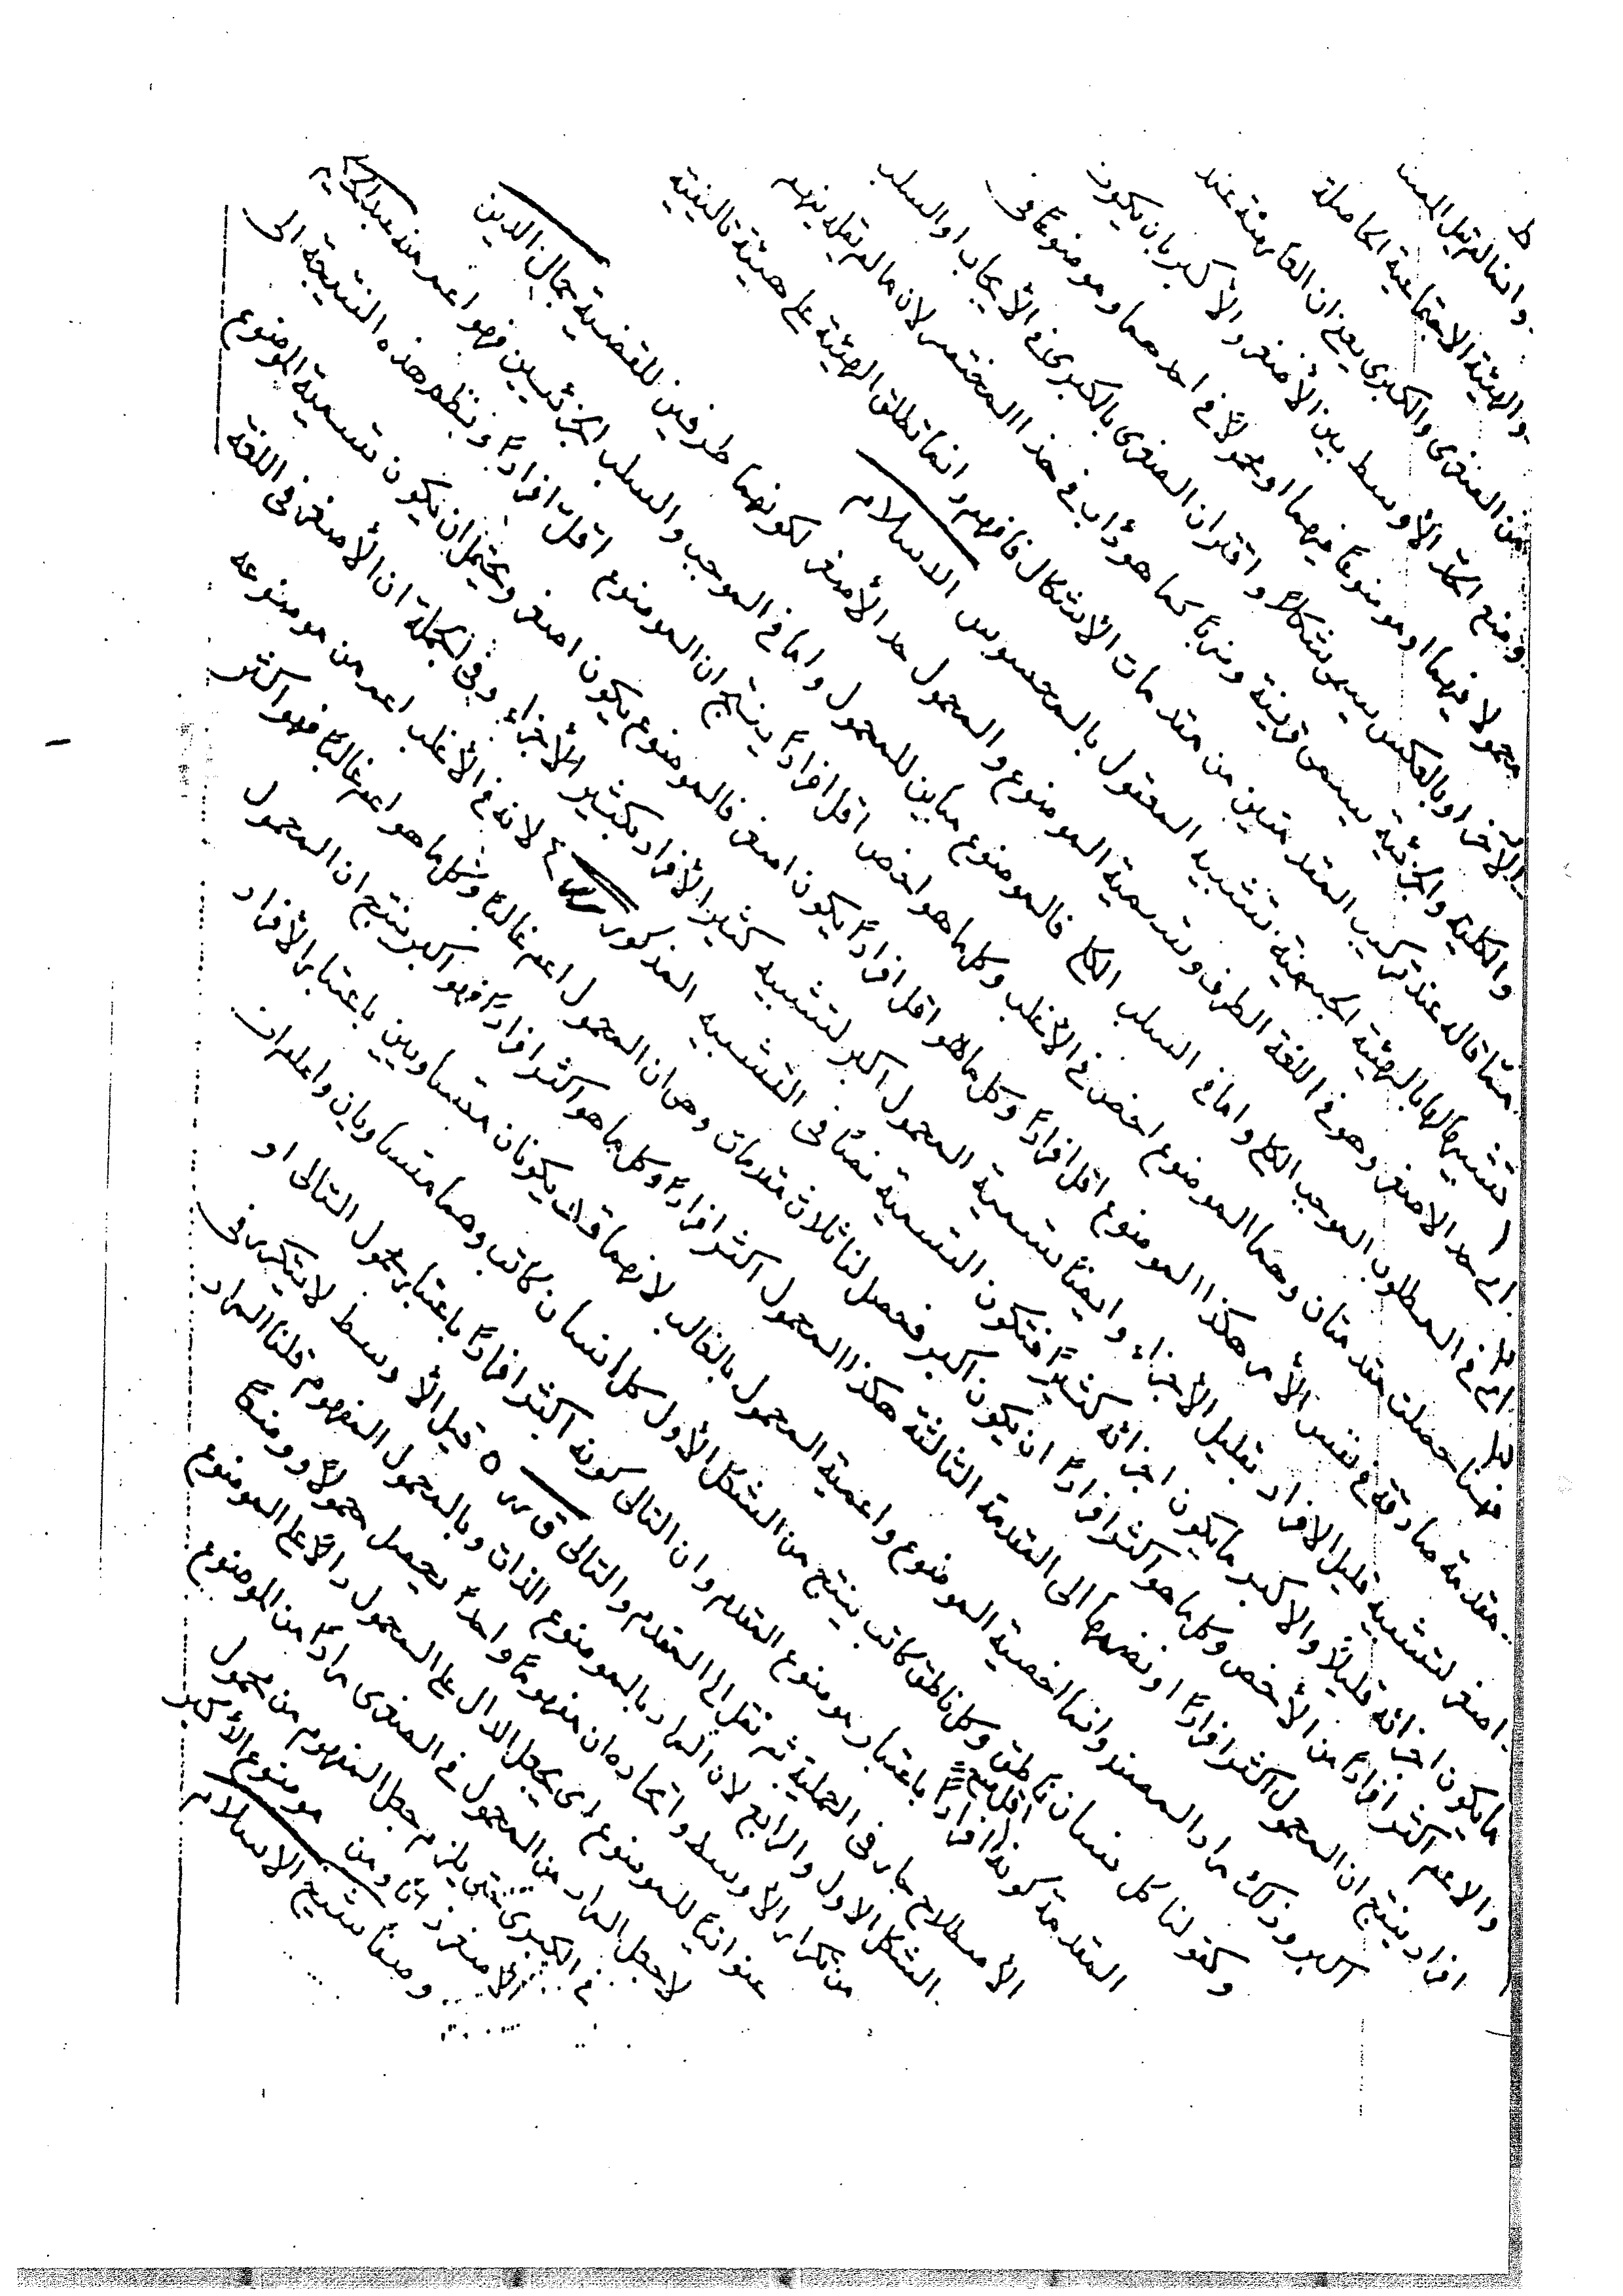 وانما لم يقل المصنف
والهيئة الاجتماعية الحاصلة
من الصغرى والكبرى يعنى ان العارضة عند
وضع الحد الأوسط بين الأصغر والأكبر بان يكون
محمولا فيهما او موضوعا فيهما او محمولا في احدهما وموضوعا في
الآخر او بالعكس يسمى شكلا و اقتران الصغرى بالكبرى في الأيجاب او السلب
والكلية والجزئية يسمى قرينة وضربا كما هو دأب في هذا المختصر لان ما لم يقله يفهم
مما قاله عند تركيب المقدمتين من مقدمات الأشكال فافهم وانما تطلق الهيئة على هيئة تاليفية
تشبيها لها بالهيئة الجسمية تشبيه المعقول بالمحسوس الاسلام
اى حد الاصغر وهو في اللغة الطرف وتسمية الموضوع والمحمول حد الأصغر لكونهما طرفين للقضية جمال الدين
اى في المطلوب الموجب الكلى واما في السلب الكلى فالموضوع مباين للمحمول واما في الموجب والسلب الجزئيين فهو اعم منه عبد الحكيم
فهنا حصلت مقدمتان وهما الموضوع اخص في الاغلب وكل ما هو اخص اقل افرادا ينتج ان الموضوع اقل افرادا وبنظم هذه النتيجة الى
مقدمة صادقة في نفس الأمر هكذا الموضوع اقل افرادا وكل ما هو اقل افرادا يكون اصغر فالموضوع يكون اصغر ويحتمل ان يكون تسمية الموضوع
اصغر لتشبيه قليل الافراد بقليل الأجزاء وايضا تسمية المحمول اكبر لتشبيه كثير الأفراد بكثير الأجزاء وفي الجملة ان الأصغر في اللغة
ما يكون اجزائه قليلا والاكبر ما يكون اجزائه كثيرا فتكون التسمية نصا في التشبيه المذكور ٤ لانه في الأغلب اعم من موضوعه
والاعم اكثر افرادا من الأخص وكل ما هو اكثر افرادا ان يكون اكبر فحصل لنا ثلاث مقدمات وهى ان المحمول اعم غالبا وكل ما هو اعم غالبا فهو اكثر
افراد ينتج ان المحمول اكثر افرادا او نضمها الى المقدمة الثالثة هكذا المحمول اكثر افرادا وكل ما هو اكثر افرادا فهو اكبر ينتج ان المحمول
اكبر وذلك مراد المصنف وانما اخصية الموضوع واعمية المحمول بالغالب لانهما قد يكونان متساويين باعتبار الأفراد
وكقولنا كل انسان ناطق وكل ناطق كاتب ينتج من الشكل الأول كل انسان كاتب وهما متساويان واعلم ان
المقدمة كونه اقل افرادا باعتبار موضوع المقدم وان التالى كونه اكثر افرادا باعتبار محمول التالى او
الأصطلاح جار في الحملية ثم نقل الى المقدم والتالى ق س ٥ قيل الأوسط لا يتكرر في
الشكل الاول والرابع لان المراد بالموضوع الذات وبالمحمول المفهوم قلنا المراد
من تكرار الأوسط واتحاده ان مفهوما واحدا يحصل محمولا وموضوعا
عنوانيا للموضوع اى يجعل الدال على المحمول دالا على الموضوع
لا جعل المراد من المحمول في الصغرى مرادا من الموضوع
في الكبرى حتى يلزم جعل المفهوم من محمول
الأصغر ذاتا ومن موضوع الأكبر
وصفا شيخ الاسلام